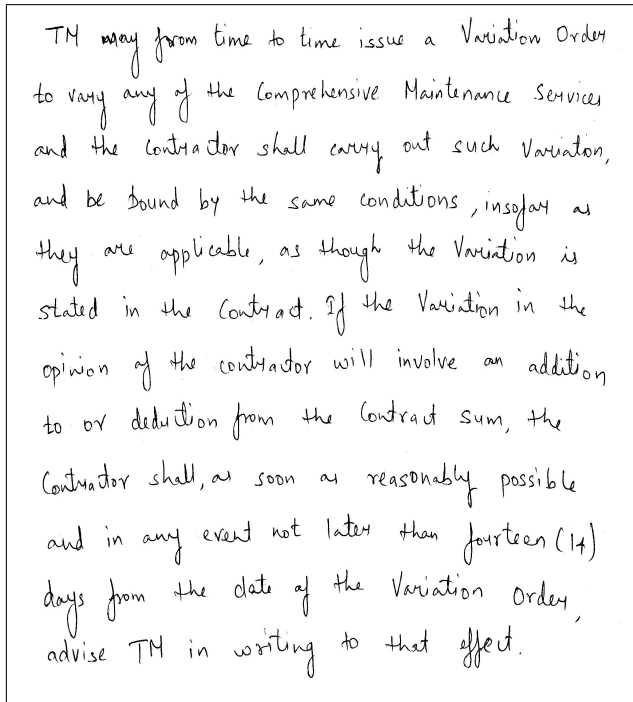 TM may from time to time issue a Variation Order
to vary any of the Comprehensive Maintenance Services
and the Contractor shall carry out such Variaton,
and be bound by the same conditions, insofar as
they are applicable, as though the Variation is
stated in the Contract. If the Variation in the
opinion of the contractor will involve an addition
to or deduction from the Contract sum, the
Contractor shall, as soon as reasonably possible
and in any event not later than fourteen (14)
days from the date of the Variation Order,
advise TM in writing to that effect.